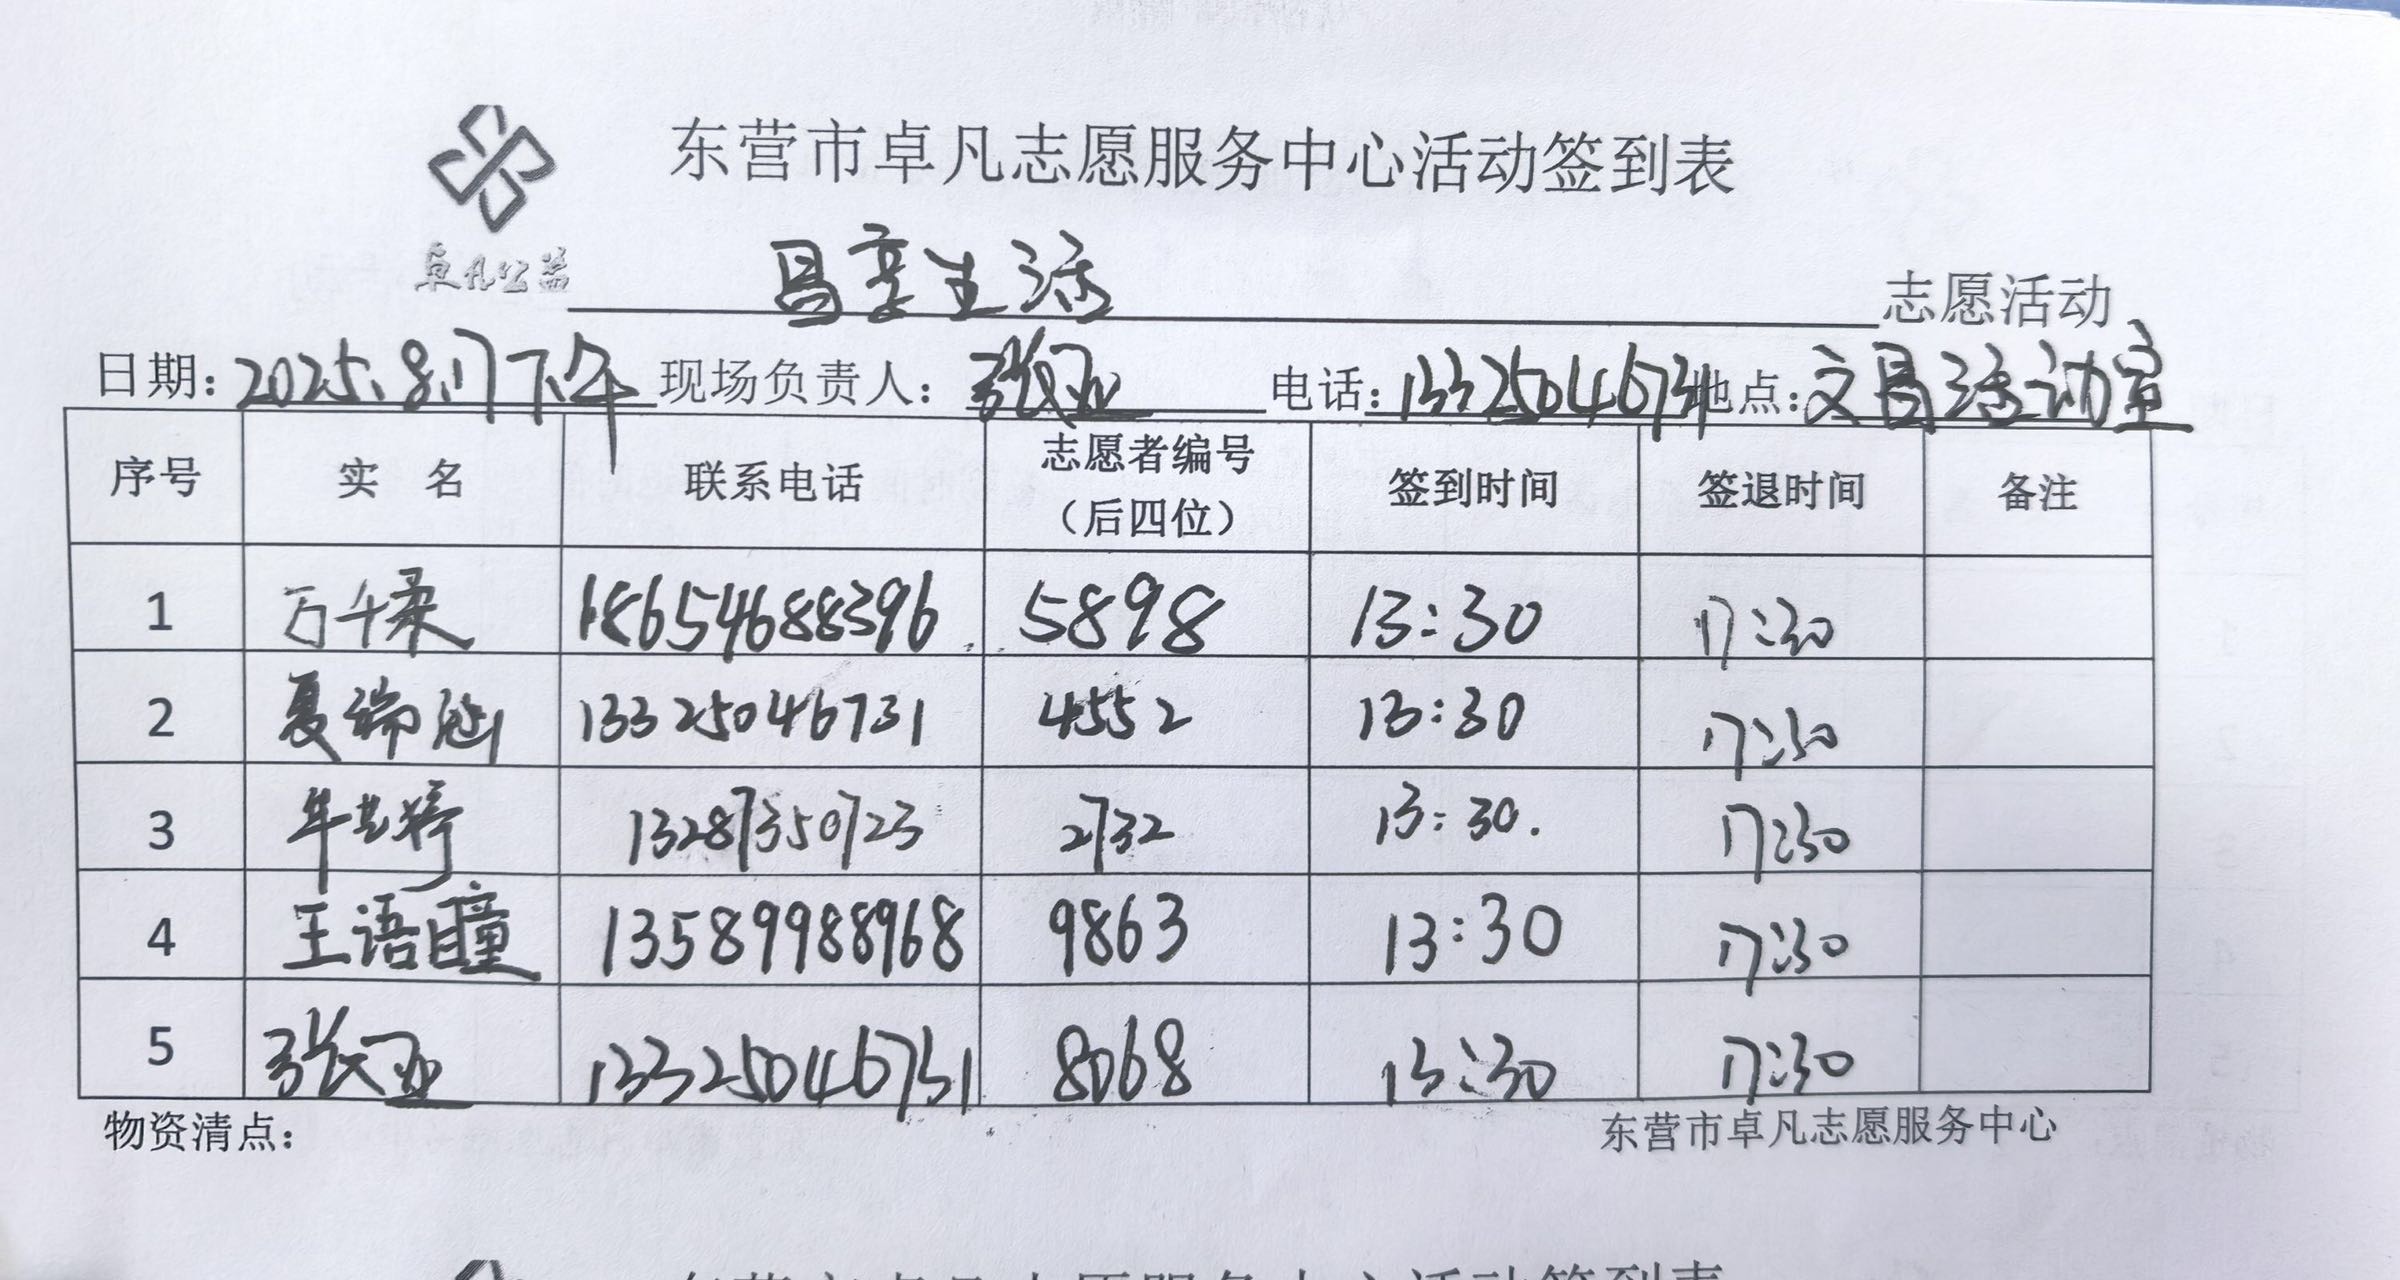 东营市卓凡志愿服务中心活动签到表
卓凡公益
昌享生活 志愿活动
日期：2025.8.17下午 现场负责人：张亚 电话：13325046731 地点：文昌活动室
序号 实 名 联系电话 志愿者编号（后四位） 签到时间 签退时间 备注
1 万千柔 18654688396 5898 13:30 17:30
2 夏瑞涵 13325046731 4552 13:30 17:30
3 牟艺婷 13287350723 2732 13:30. 17:30
4 王语瞳 13589988968 9863 13:30 17:30
5 张亚 13325046731 8068 13:30 17:30
物资清点： 东营市卓凡志愿服务中心
东营市卓凡志愿服务中心活动签到表